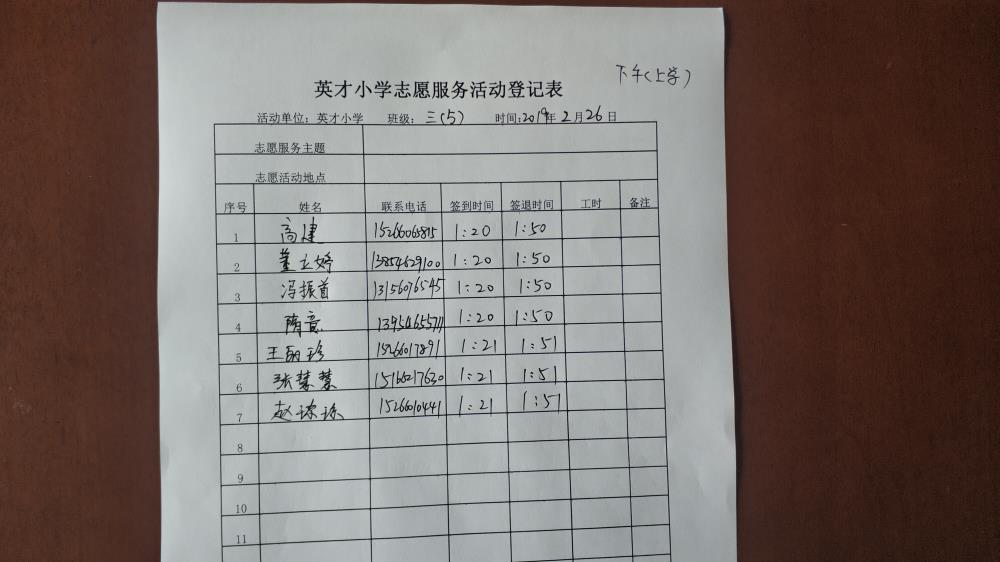 下午(上学)
英才小学志愿服务活动登记表
活动单位：英才小学 班级：三(5) 时间：2019年2月26日
志愿服务主题
志愿活动地点
序号 姓名 联系电话 签到时间 签退时间 工时 备注
1 高建 1:20 1:50
2 董立婷 13854629100 1:20 1:50
3 冯振首 13156076545 1:20 1:50
4 隋意 13954655711 1:20 1:50
5 王丽珍 15266017891 1:21 1:51
6 张慧慧 15166217630 1:21 1:51
7 赵 15266010441 1:21 1:51
8
9
10
11